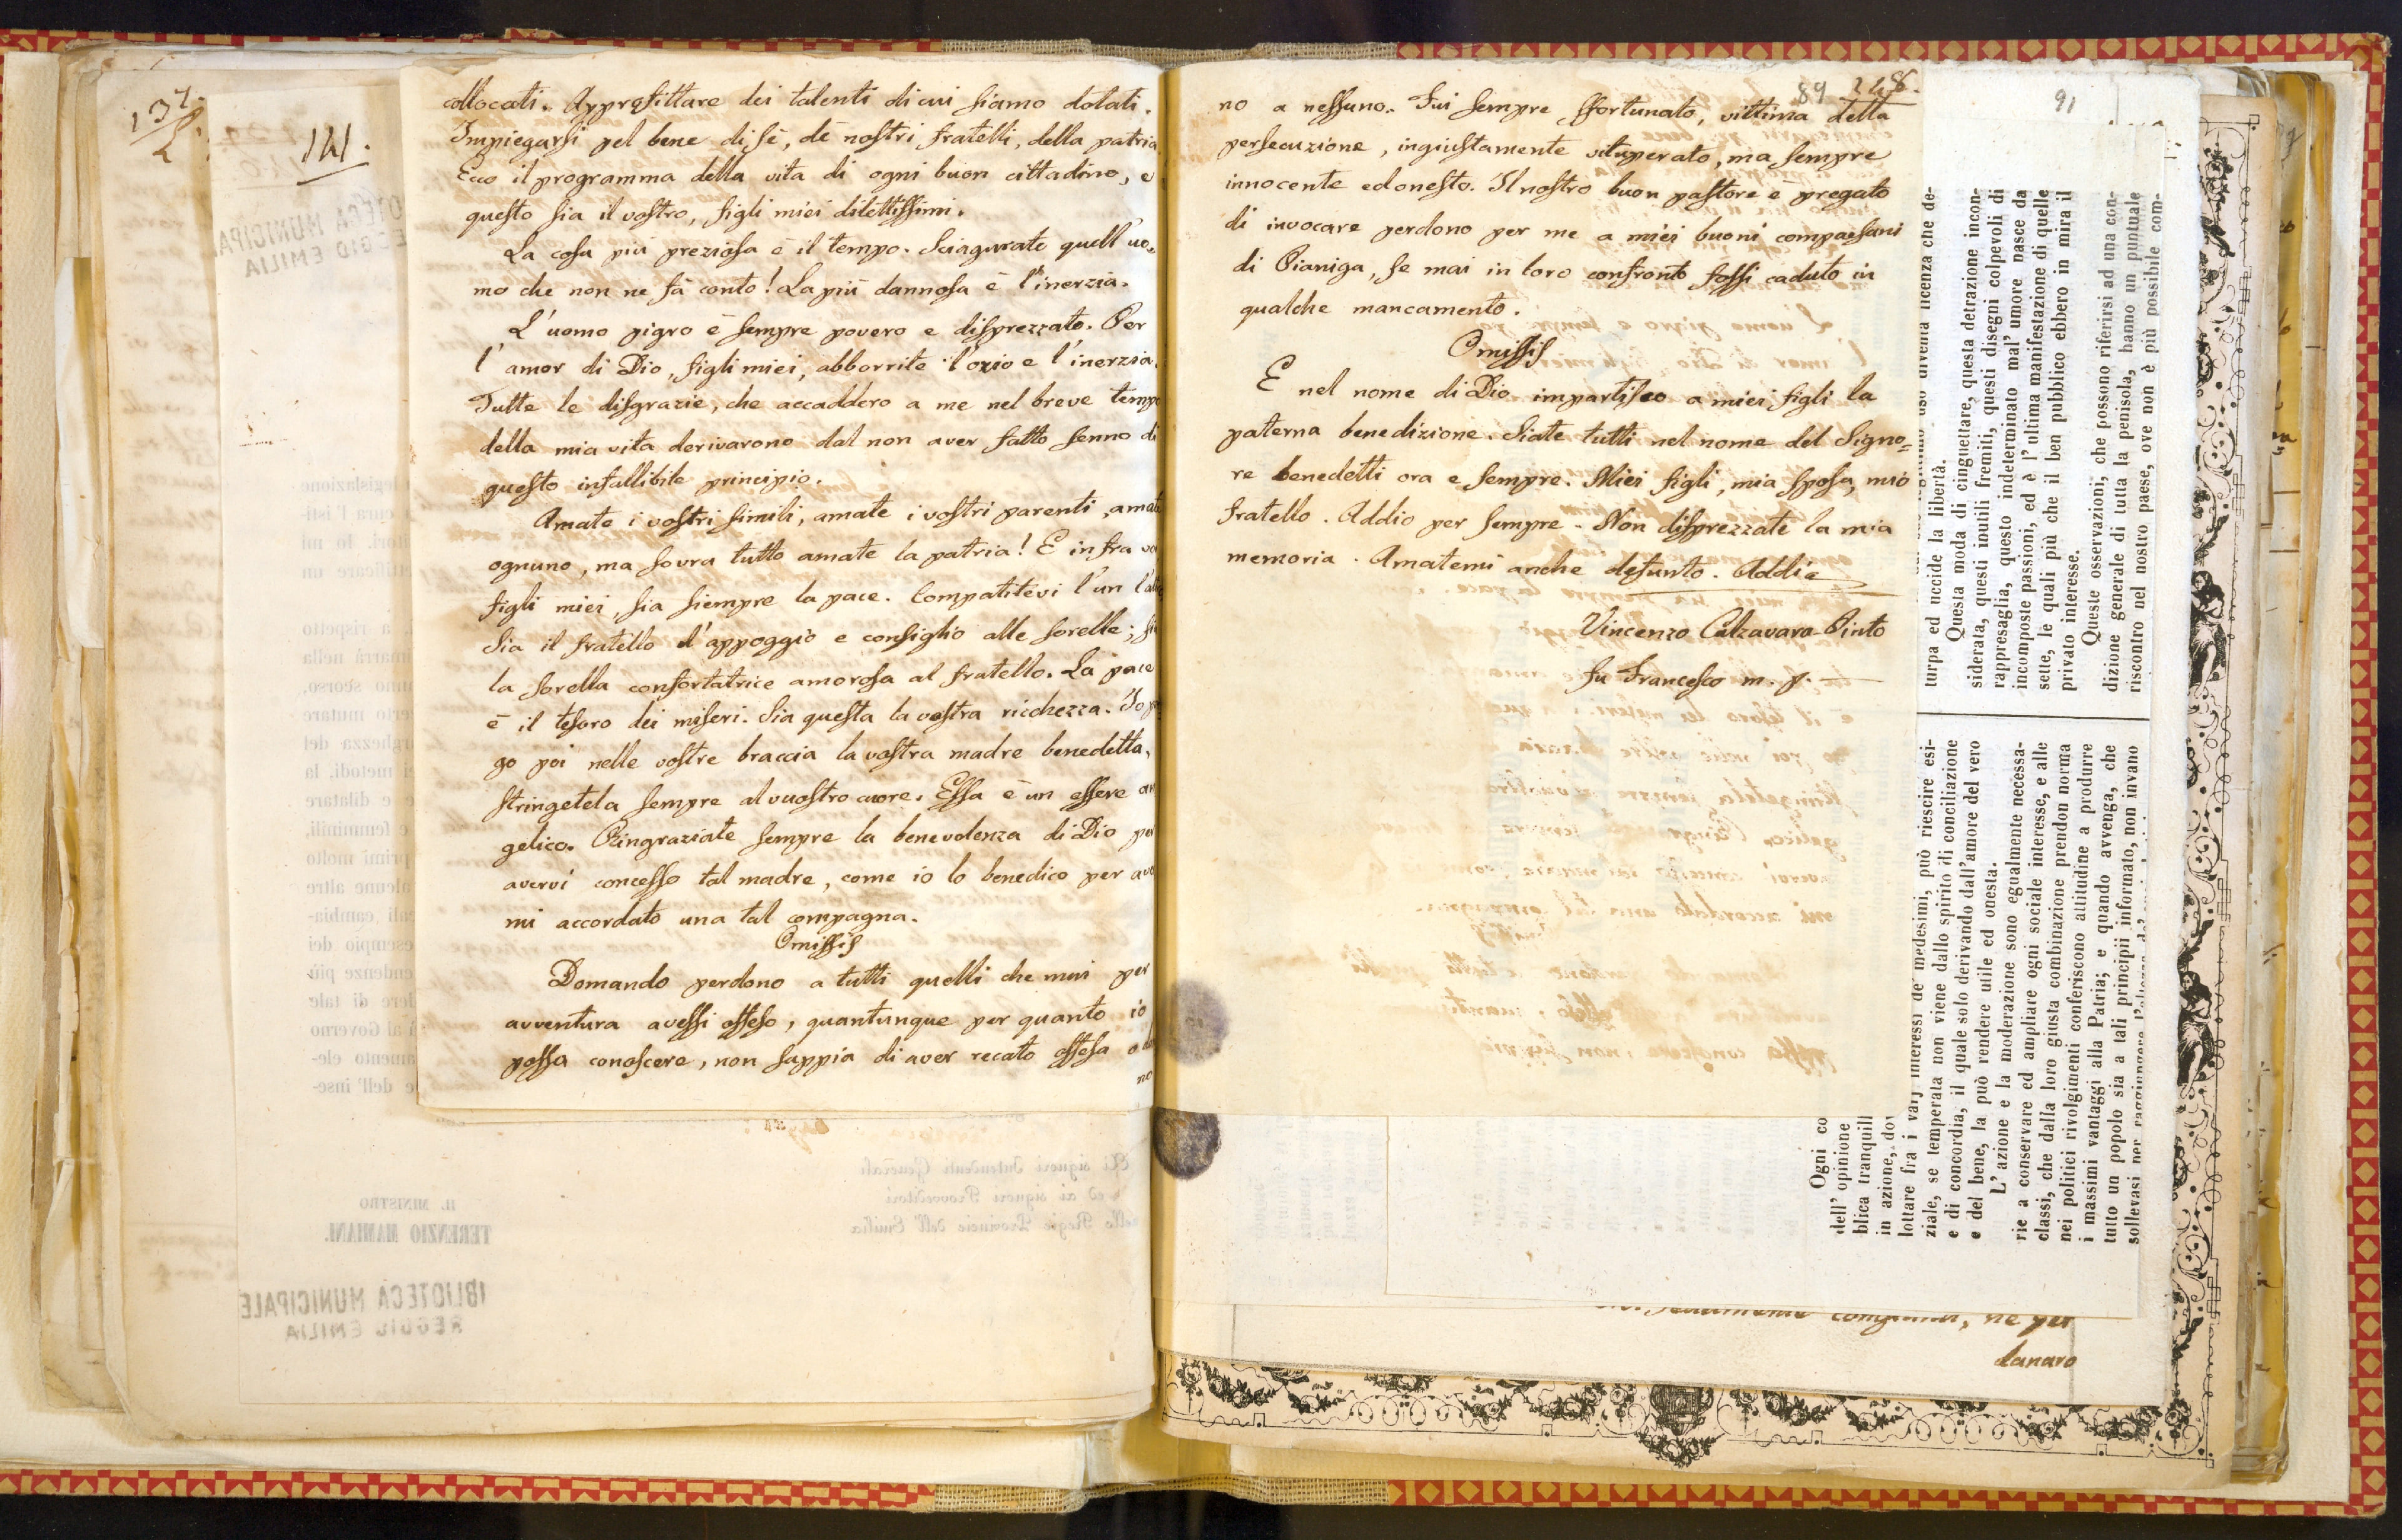 137.
2.
141.
collocati. Approfittare dei talenti di cui siamo dotati.
Impiegarsi pel bene di sè, de nostri fratelli, della patria
Ecco il programma della vita di ogni buon cittadino, e
questo sia il vostro, figli miei dilettissimi.
La cosa più preziosa è il tempo. Sciagurato quell'uo=
mo che non ne fà conto! La più dannosa è l'inerzia.
L'uomo pigro è sempre povero e disprezzato. Per
l'amor di Dio, figli miei, abborrite l'ozio e l'inerzia.
Tutte le disgrazie, che accaddero a me nel breve tempo
della mia vita derivarono dal non aver fatto senno di
questo infallibile principio.
Amate i vostri simili, amate i vostri parenti, amate
ognuno, ma sovra tutto amate la patria! E infra vo
figli miei, sia siempre la pace. Compatitevi l'un l'alt
Sia il fratello d'appoggio e consiglio alle sorelle; si
la sorella confortatrice amorosa al fratello. La pace
è il tesoro dei miseri. Sia questa la vostra ricchezza. Io p
go poi nelle vostre braccia la vostra madre benedetta,
stringetela sempre al vuostro cuore. Essa è un essere an
gelico. Ringraziate sempre la benevolenza di Dio per
avervi concesso tal madre, come io lo benedico per ave
mi accordato una tal compagna.
Omissis
Domando perdono a tutti quelli che mai per
avventura avessi offeso, quantunque per quanto io
possa conoscere, non sappia di aver recato offesa
no
IL MINISTRO
TERENZIO MAMIANI.
Ai signori Intendenti Generali
ed ai signori Provveditori
delle Regie Provincie dell'Emilia
BIBLIOTECA MUNICIPALE
REGGIO EMILIA
89
no a nessuno. Fui sempre sfortunato, vittima della
persecuzione, ingiustamente vituperato, ma sempre
innocente ed onesto. Il nostro buon pastore è pregato
di invocare perdono per me a miei buoni compaesani
di Pianiga, se mai in loro confronto fossi caduto in
qualche mancamento.
Omissis
E nel nome di Dio impartisco a miei figli la
paterna benedizione. Siate tutti nel nome del Signo=
re benedetti ora e sempre. Miei figli, mia sposa, mio
fratello. Addio per sempre. Non disprezzate la mia
memoria. Amatemi anche defunto. Addio
Vincenzo Calzavara-Pinto
fu Francesco m. p.
91
turpa ed uccide la libertà.
Questa moda di cinguettare, questa detrazione incon-
siderata, questi inutili fremiti, questi disegni colpevoli di
rappresaglia, questo indeterminato mal' umore nasce da
incomposte passioni, ed è l'ultima manifestazione di quelle
sette, le quali più che il ben pubblico ebbero in mira il
privato interesse.
Queste osservazioni, che possono riferirsi ad una con-
dizione generale di tutta la penisola, hanno un puntuale
riscontro nel nostro paese, ove non è più possibile com-
Ogni co
dell' opinione
blica tranquill
in azione, dov
lottare fra i varj interessi de' medesimi, può riescire esi-
ziale, se temperata non viene dallo spirito di conciliazione
e di concordia, il quale solo derivando dall'amore del vero
e del bene, la può rendere utile ed onesta.
L'azione e la moderazione sono egualmente necessa-
rie a conservare ed ampliare ogni sociale interesse, e alle
classi, che dalla loro giusta combinazione prendon norma
nei politici rivolgimenti conferiscono attitudine a produrre
i massimi vantaggi alla Patria; e quando avvenga, che
tutto un popolo sia a tali principii informato, non invano
sollevasi per raggiungere
ne per
danaro